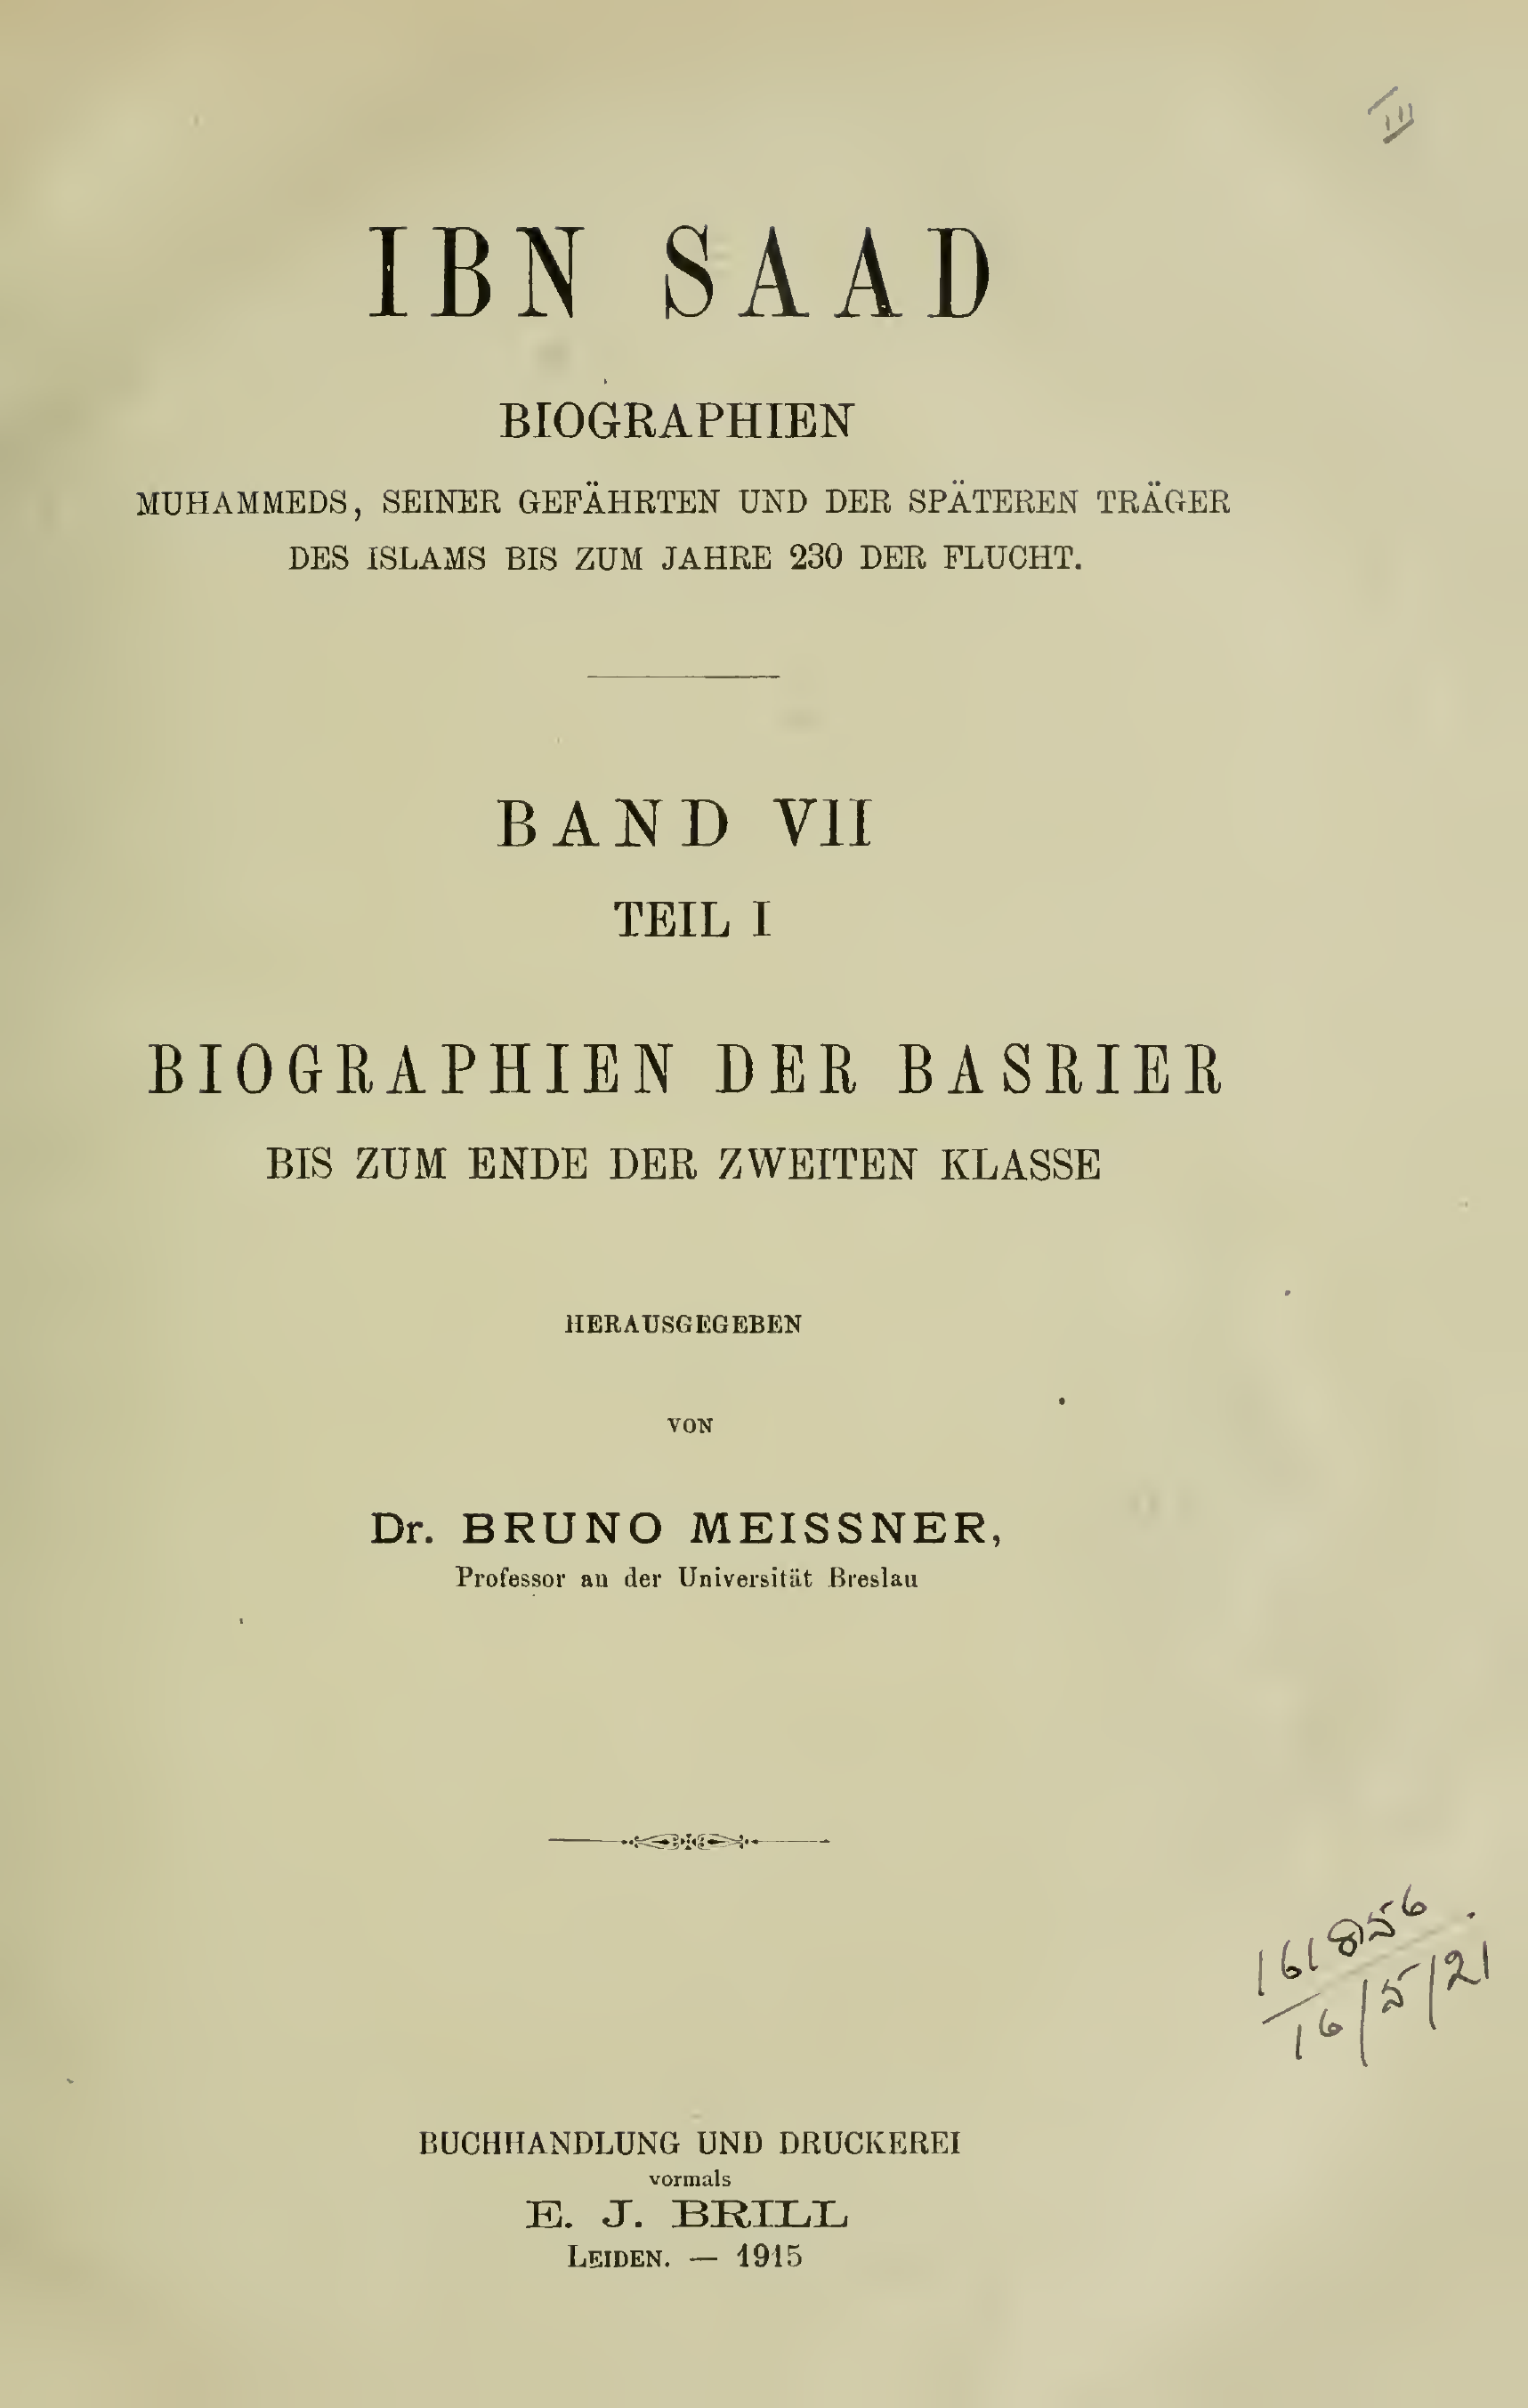 III
IBN SAAD
BIOGRAPHIEN
MUHAMMEDS, SEINER GEFÄHRTEN UND DER SPÄTEREN TRÄGER
DES ISLAMS BIS ZUM JAHRE 230 DER FLUCHT.
BAND VII
TEIL I
BIOGRAPHIEN DER BASRIER
BIS ZUM ENDE DER ZWEITEN KLASSE
HERAUSGEGEBEN
VON
Dr. BRUNO MEISSNER,
Professor an der Universität Breslau
161856
16/5/21
BUCHHANDLUNG UND DRUCKEREI
vormals
E. J. BRILL
LEIDEN. — 1915